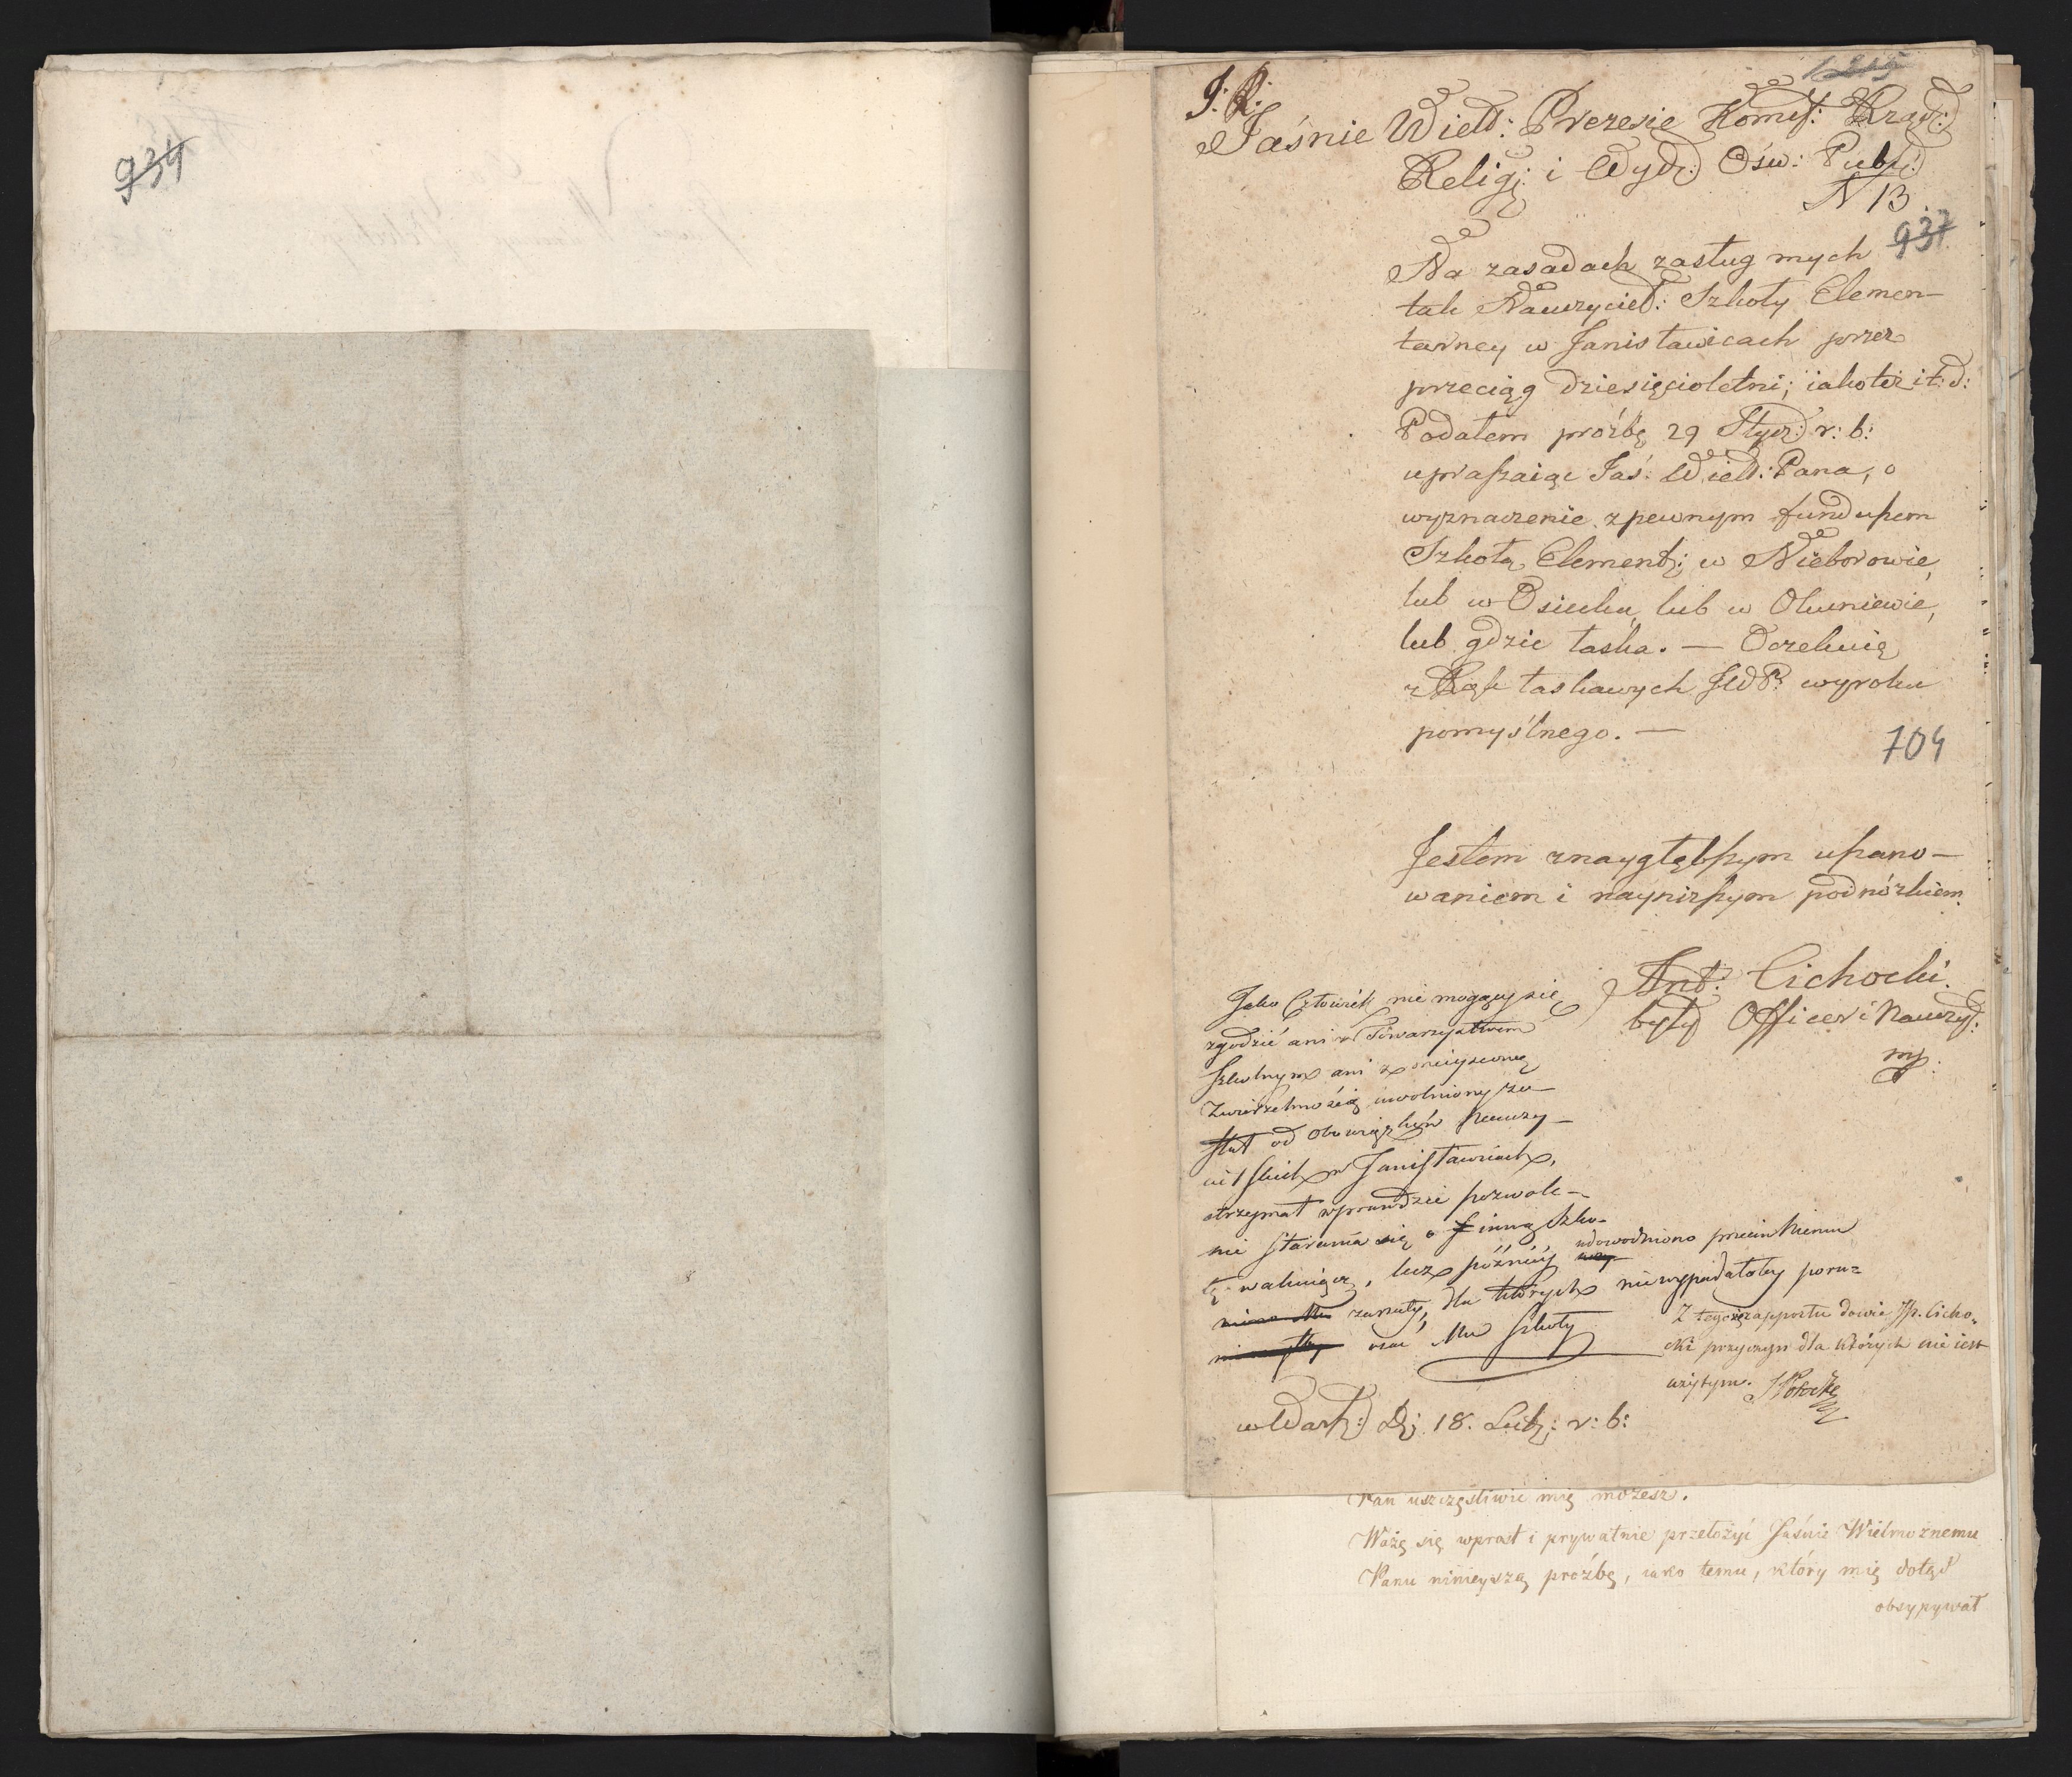 934
J: K:
Jaśnie Wield: Prezesie Komis: Rząd:
Religj: i Wydz: Ośw: Publ:
N 13
937
Na zasadach zasług mych
tak Nauczyciel: Szkoły Elemen-
tarney w Janisławicach przez
przeciąg dziesięcioletni; iakoteż i t: d:
Podałem prośbę 29 Stycz: r: b:
upraszaiąc Jaś: Wiel: Pana, o
wyznaczenie z pewnym funduszem
Szkołą Element: w Nieborowie,
lub w Osiecku, lub w Okuniewie,
lub gdzie łaska. — Oczekuię
z Rąk łaskawych JWP: wyroku
pomyślnego. —
704
Jestem z naygłębszym uszano-
waniem i nayniższym podnóżkiem
Ant: Cichocki.
były Officer i Nauczyc:
mp.
Jako Człowiek nie mogący się
zgodzić ani z Towarzystwem
Szkolnym ani z mieyscową
Zwierzchnością uwolniony zo-
stał od Obowiązków Nauczy-
cielskich w Janisławicach,
otrzymał wprawdzie pozwole-
nie starania się o inną Szko-
łę wakuiącą, lecz późniey udowodniono przeciw Niemu
zarzuty, dla których nie wypadałoby poru-
czać Mu Szkoły
Z tego rapportu dowie JP. Cicho-
cki przyczyn dla których nie iest
użytym. S Potocki
w Warsz: D: 18. Lut: r: b:
Pan uszczęśliwić mię możesz.
Ważę się wprost i prywatnie przełożyć Jaśnie Wielmożnemu
Panu ninieyszą prośbę, iako temu, który mię dotąd
obsypywał